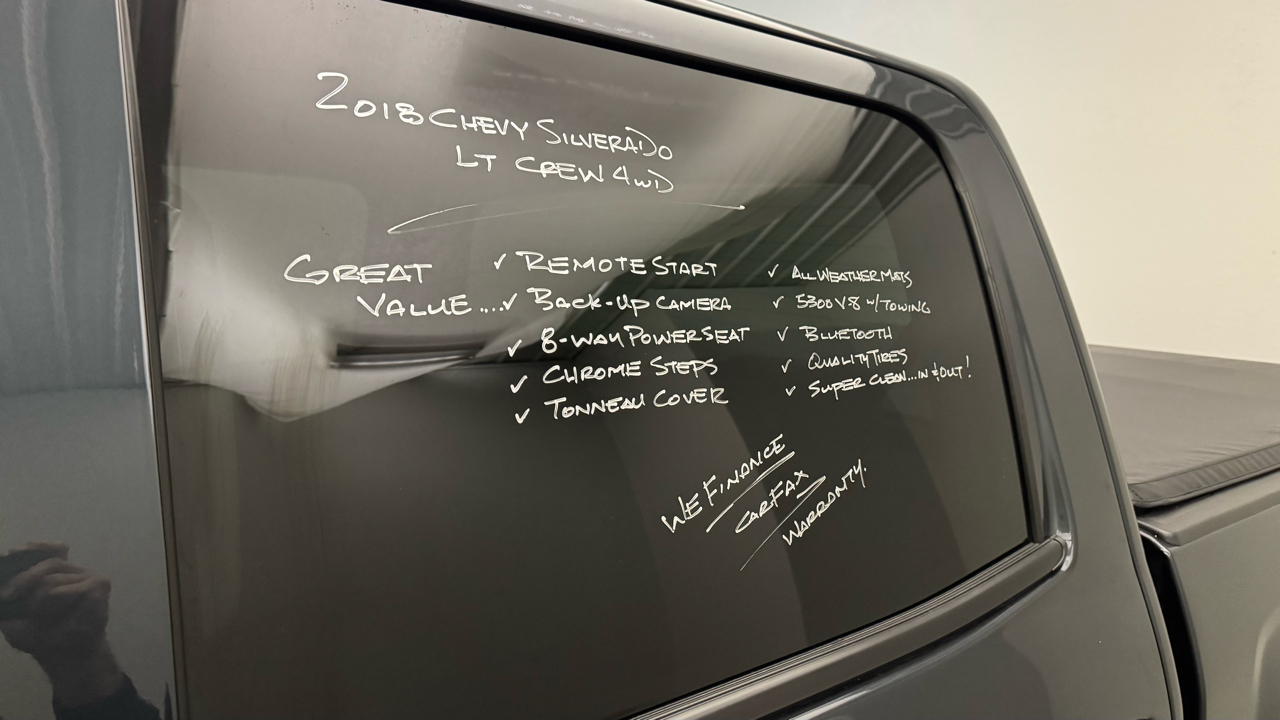 2018 CHEVY SILVERADO
LT CREW 4WD
GREAT
VALUE....
✓ REMOTE START
✓ BACK-UP CAMERA
✓ 8-WAY POWER SEAT
✓ CHROME STEPS
✓ TONNEAU COVER
✓ ALL WEATHER MATS
✓ 5300 V8 W/ TOWING
✓ BLUETOOTH
✓ QUALITY TIRES
✓ SUPER CLEAN...IN & OUT!
WE FINANCE
CARFAX
WARRANTY.